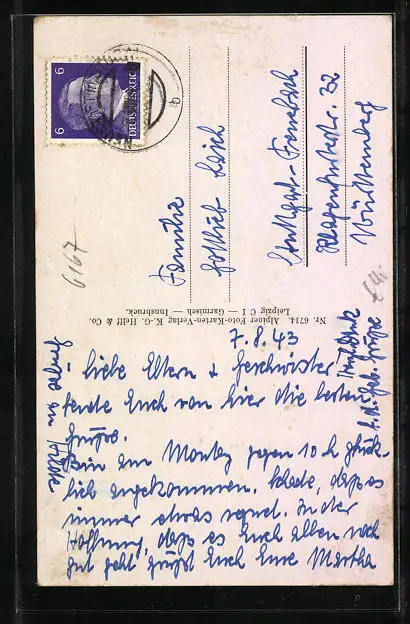 6
6
DEUTSCHES REICH
b
Familie
Gottlieb
Stuttgart-Feuerbach
Klagenfurterstr. 32
Württemberg
6167
Nr. 6714. Alpiner Foto-Karten-Verlag K.-G. Helff & Co.
Leipzig C 1 — Garmisch — Innsbruck.
7.8.43
Liebe Eltern & Geschwister!
sende Euch von hier die besten
Grüße.
Bin am Montag gegen 10 h glück-
lich angekommen. Schade, daß es
immer etwas regnet. In der
Hoffnung, daß es Euch allen noch
gut geht grüßt Euch Eure Martha
Grüße an
Grüße